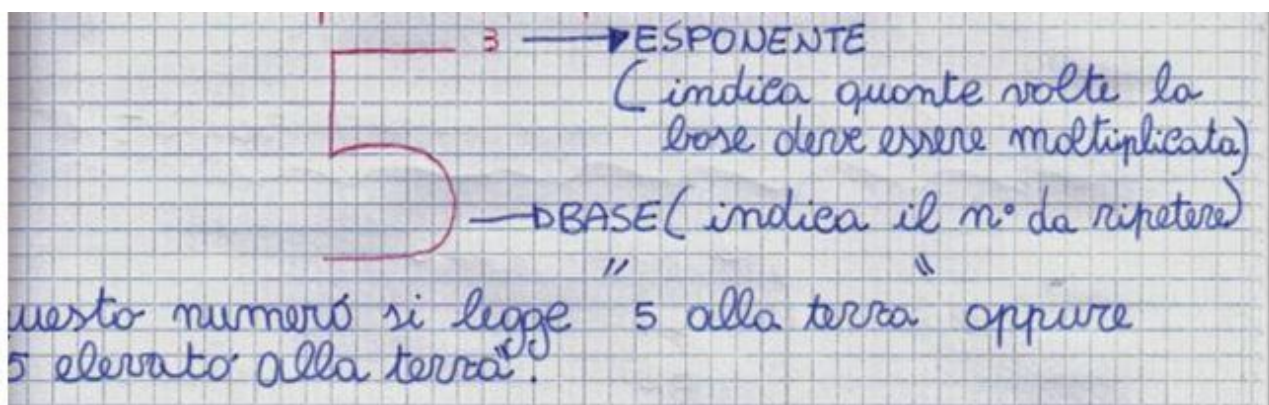 5 3 → ESPONENTE
(indica quante volte la
base deve essere moltiplicata)
→ BASE (indica il n° da ripetere)
uesto numero si legge "5 alla terza" oppure
5 elevato alla terza".